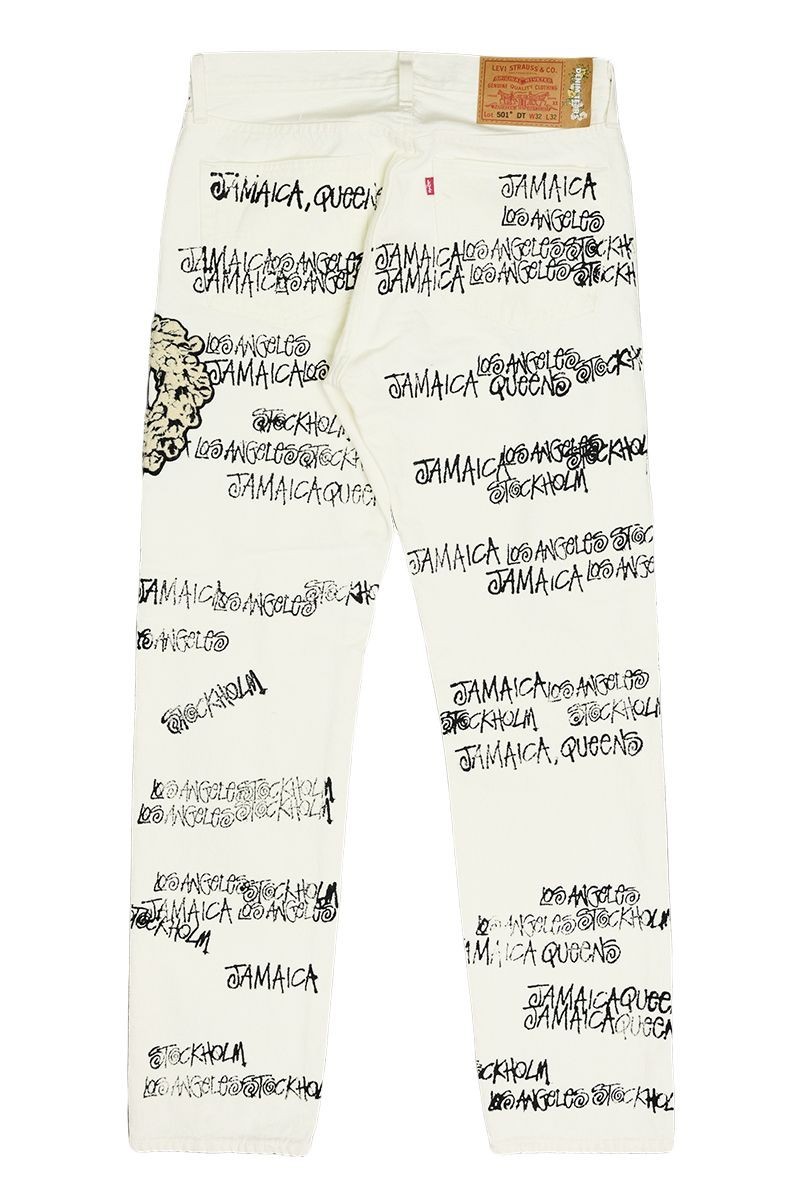 LEVI STRAUSS & CO.
ORIGINAL RIVETED
GENUINE QUALITY CLOTHING
Lot 501® DT W32 L32
DENIM TEARS
JAMAICA, QUEENS
JAMAICA
LOS ANGELES
JAMAICA LOS ANGELES
JAMAICA LOS ANGELES
JAMAICA LOS ANGELES STOCKH
JAMAICA LOS ANGELES STOCKH
LOS ANGELES
JAMAICA LOS
LOS ANGELES STOCKH
JAMAICA QUEENS
STOCKHOLM
LOS ANGELES STOCKH
JAMAICA QUEEN
JAMAICA LOS ANGELES STOCKHOLM
STOCKHOLM
JAMAICA LOS ANGELES STOC
JAMAICA LOS ANGE
JAMAICA LOS ANGELES STOCKHO
LOS ANGELES
STOCKHOLM
JAMAICA LOS ANGELES
STOCKHOLM STOCKHOLM
JAMAICA, QUEENS
LOS ANGELES STOCKHOLM
LOS ANGELES STOCKHOLM
LOS ANGELES STOCKHOLM
JAMAICA LOS ANGELES
STOCKHOLM
JAMAICA
LOS ANGELES
LOS ANGELES STOCKHOLM
AMAICA QUEENS
JAMAICA QUEE
JAMAICA QUEEN
STOCKHOLM
LOS ANGELES STOCKHOL
OCKHOLM
LOS ANGELES STOCKHOL